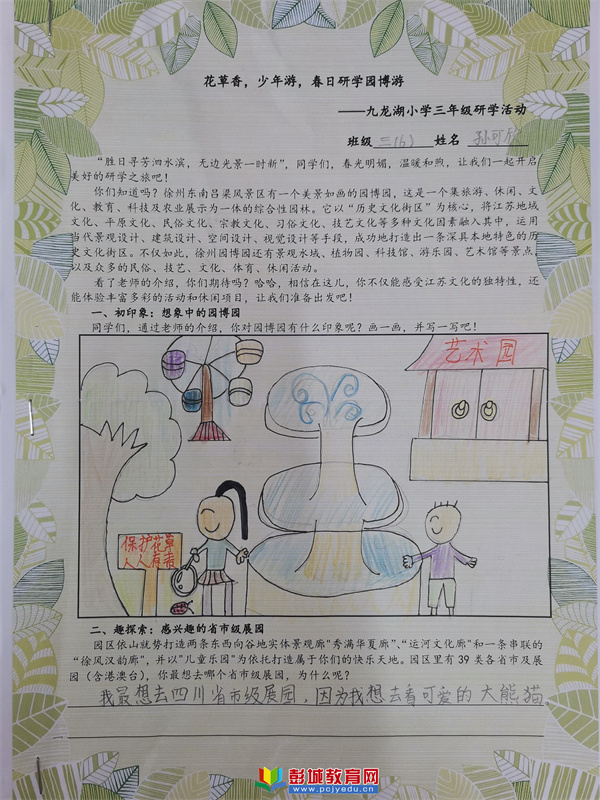 花草香，少年游，春日研学园博游
——九龙湖小学三年级研学活动
班级 三(6) 姓名 孙可
“胜日寻芳泗水滨，无边光景一时新”，同学们，春光明媚，温暖和煦，让我们一起开启
美好的研学之旅吧！
你们知道吗？徐州东南吕梁风景区有一个美景如画的园博园，这是一个集旅游、休闲、文
化、教育、科技及农业展示为一体的综合性园林。它以“历史文化街区”为核心，将江苏地域
文化、平原文化、民俗文化、宗教文化、习俗文化、技艺文化等多种文化因素融入其中，运用
当代景观设计、建筑设计、空间设计、视觉设计等手段，成功地打造出一条深具本地特色的历
史文化街区。不仅如此，徐州园博园还有景观水域、植物园、科技馆、游乐园、艺术馆等景点，
以及众多的民俗、技艺、文化、体育、休闲活动。
看了老师的介绍，你们期待吗？哈哈，相信在这儿，你不仅能感受江苏文化的独特性，还
能体验丰富多彩的活动和休闲项目，让我们准备出发吧！
一、初印象：想象中的园博园
同学们，通过老师的介绍，你对园博园有什么印象呢？画一画，并写一写吧！
艺术园
保护花草
人人有责
二、趣探索：感兴趣的省市级展园
园区依山就势打造两条东西向谷地实体景观廊"秀满华夏廊"、"运河文化廊"和一条串联的
“徐风汉韵廊”，并以"儿童乐园"为依托打造属于你们的快乐天地。园区里有 39 类各省市及展
园（含港澳台），你最想去哪个省市级展园，为什么呢？
我最想去四川省市级展园，因为我想去看可爱的大熊猫。
彭城教育网
www.pcjyedu.cn